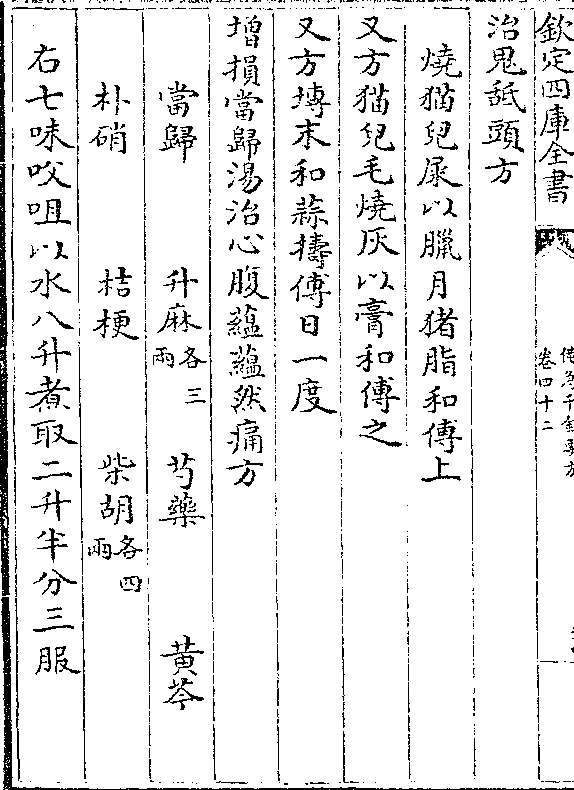 欽定四庫全書
備急千金要方
卷四十二
治鬼舐頭方
燒猫兒屎以臘月猪脂和傅上
又方猫兒毛燒灰以膏和傅之
又方塼末和蒜擣傅日一度
增損當歸湯治心腹蘊蘊然痛方
當歸 升麻各三兩 芍藥 黃芩
朴硝 桔梗 柴胡各四兩
右七味㕮咀以水八升煮取二升半分三服